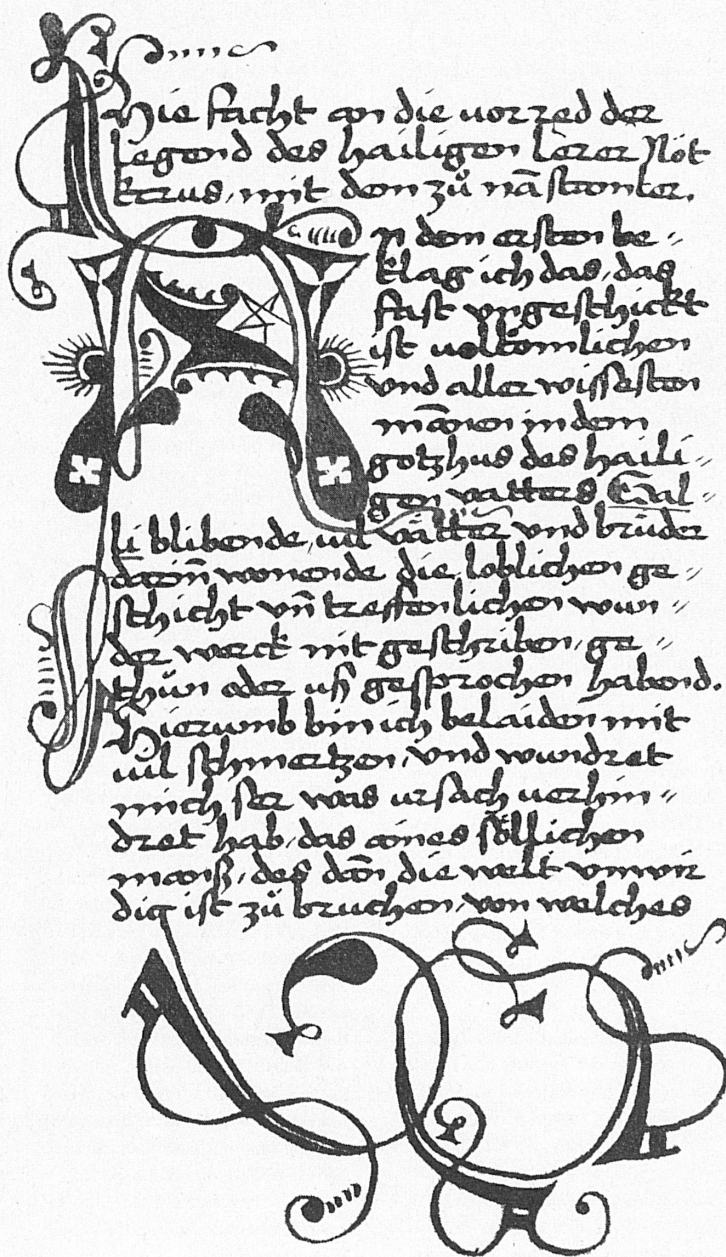 Hie facht an die vorred der
legend des hailigen lerer Nöt
kerus, mit dem zů nā stamler.
An dem ersten be〃
klag ich das, das
fast vngeschickt
ist volkomlichen
vnd aller wissesten
mannen in dem
gotzhus des haili〃
gen vatters Gal〃
li blibende, vil vätter vnd brüder
wonende die loblichen ge〃
schicht vn̄ treffenlichen wun〃
der werck nit geschriben, ge〃
thün oder uß gesprochen habend.
Hierumb bin ich belaiden mit
vil schmertzen, vnd wundret
mich ser was ursach verhin〃
dret hab, das aines söllichen
manß, deß dan̄ die welt vnwir
dig ist zů bruchen, von welches